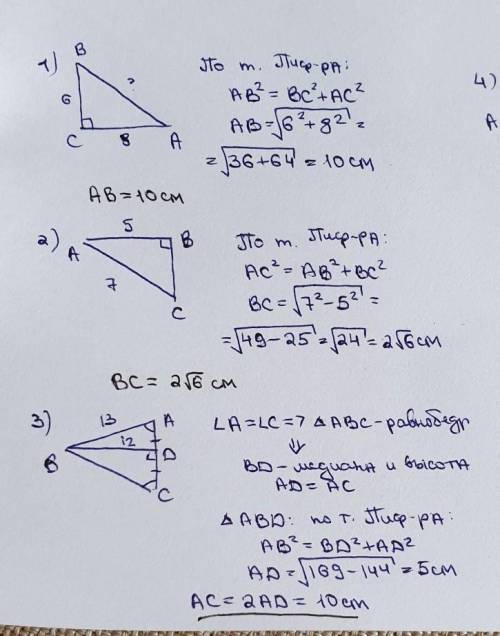 1) B По т. Пиф-рА:
? AB² = BC² + AC²
6 AB = √6² + 8² =
C 8 A = √36 + 64 = 10 см
AB = 10 см
4)
A
2) A 5 B По т. Пиф-рА:
7 AC² = AB² + BC²
C BC = √7² - 5² =
= √49 - 25 = √24 = 2√6 см
BC = 2√6 см
3) 13 A ∠A = ∠C => △ABC - равнобедр
B 12 D ⇓
C BD - медиана и высота
AD = AC
△ABD: по т. Пиф-рА:
AB² = BD² + AD²
AD = √169 - 144 = 5 см
AC = 2AD = 10 см